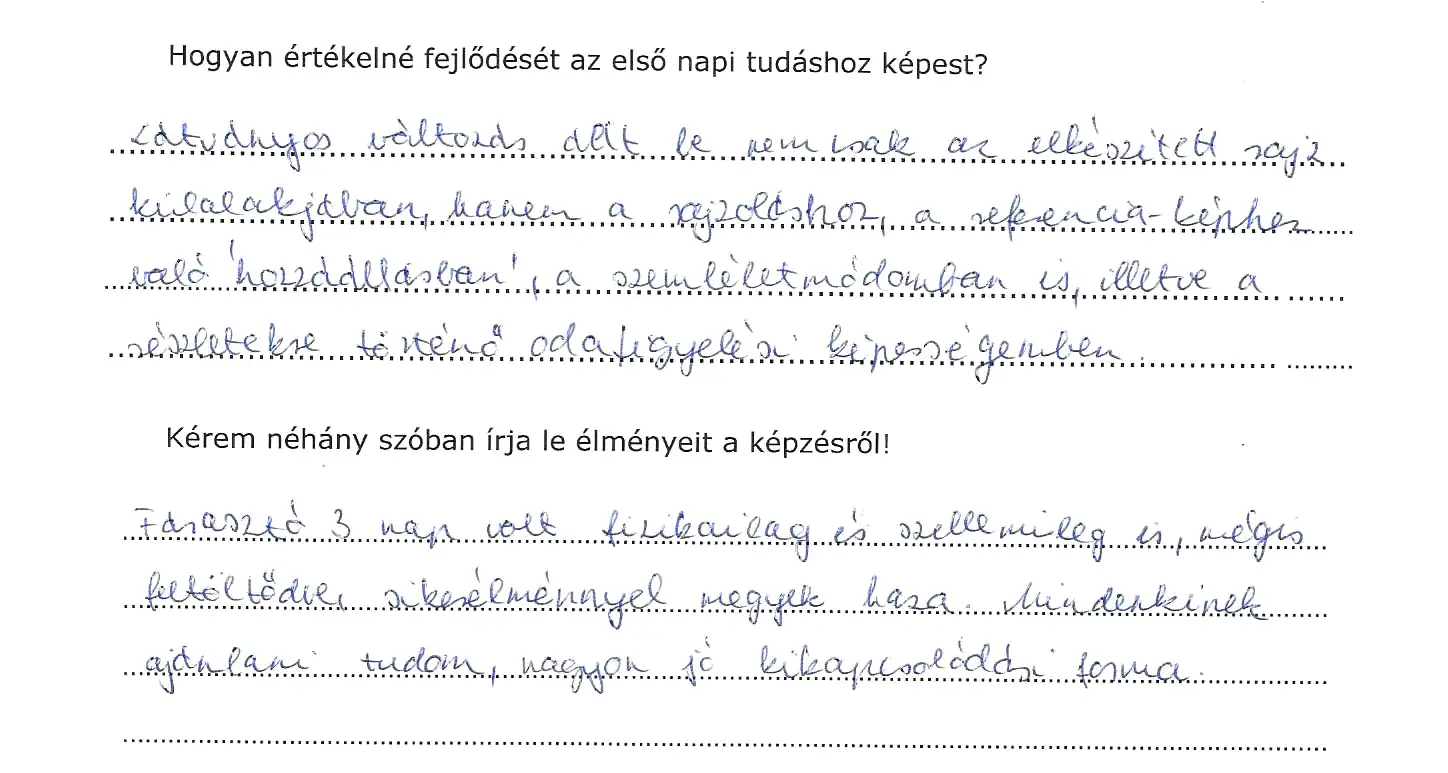 Hogyan értékelné fejlődését az első napi tudáshoz képest?
Látványos változás állt be nemcsak az elkészített rajz
külalakjában, hanem a rajzoláshoz, a referencia-képhez
való 'hozzáállásban', a szemléletmódomban is, illetve a
részletekre történő odafigyelési képességemben.
Kérem néhány szóban írja le élményeit a képzésről!
Fárasztó 3 nap volt fizikailag és szellemileg is, mégis
feltöltődve, sikerélménnyel megyek haza. Mindenkinek
ajánlani tudom, nagyon jó kikapcsolódási forma.